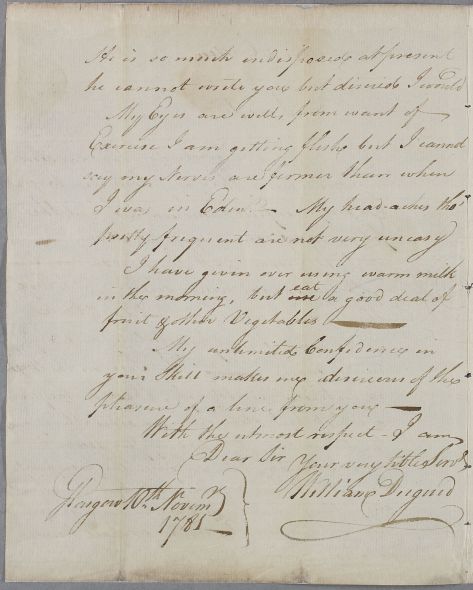 He is so much indisposed at present
he cannot write you but desired I would
My Eyes are well, from want of
Exercise I am getting flesh but I cannot
say my Nerves are firmer than when
I was in Edenr. — My head-aches tho'
pretty frequent are not very uneasy
I have given over using warm milk
in the morning, but eat a good deal of
fruit & other Vegetables
My unlimited Confidence in
your Skill makes me desireous of the
pleasure of a line from you —
With the utmost respect - I am
Dear Sir
Your very Servt
William Duguid
Glasgow 10th Novemr
1781